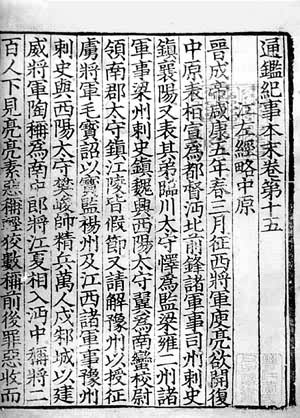 通鑑紀事本末卷第十五
江左經略中原
晉成帝咸康五年春三月征西將軍庾亮欲開復
中原表桓宣為都督沔北前鋒諸軍事司州刺史
鎮襄陽又表其弟臨川太守懌為監梁雍二州諸
軍事梁州刺史鎮魏興西陽太守翼為南蠻校尉
領南郡太守鎮江陵皆假節又請解豫州以授征
虜將軍毛寶詔以寶監楊州及江西諸軍事豫州
刺史與西陽太守樊峻帥精兵萬人戍邾城以建
威將軍陶稱為南中郎將江夏相入沔中稱將二
百人下見亮亮素惡稱輕狡數稱前後罪惡收而